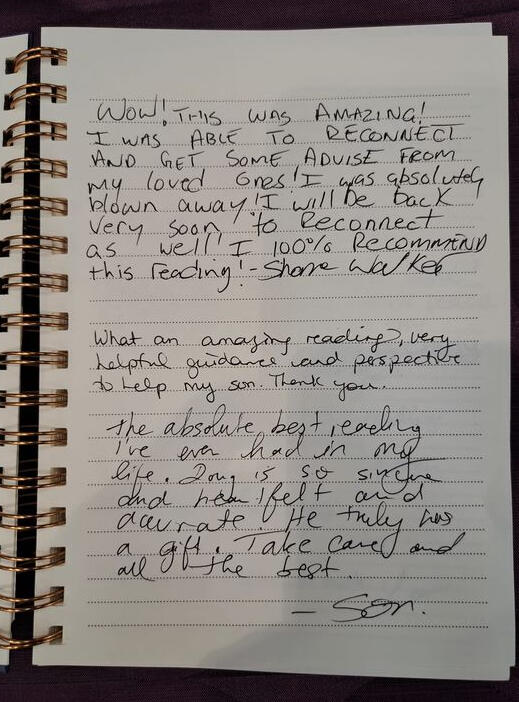 WOW! THIS WAS AMAZING!
I WAS ABLE TO RECONNECT
AND GET SOME ADVISE FROM
my loved ones! I was absolutely
blown away! I will be back
very soon to Reconnect
as well! I 100% RECOMMEND
this reading! - Walker
What an amazing reading, very
helpful guidance and perspective
to help my son. Thank you.
the absolute best reading
I've ever had in my
life. Doug is so sincere
and heartfelt and
accurate He truly has
a gift. Take care and
all the best.
-